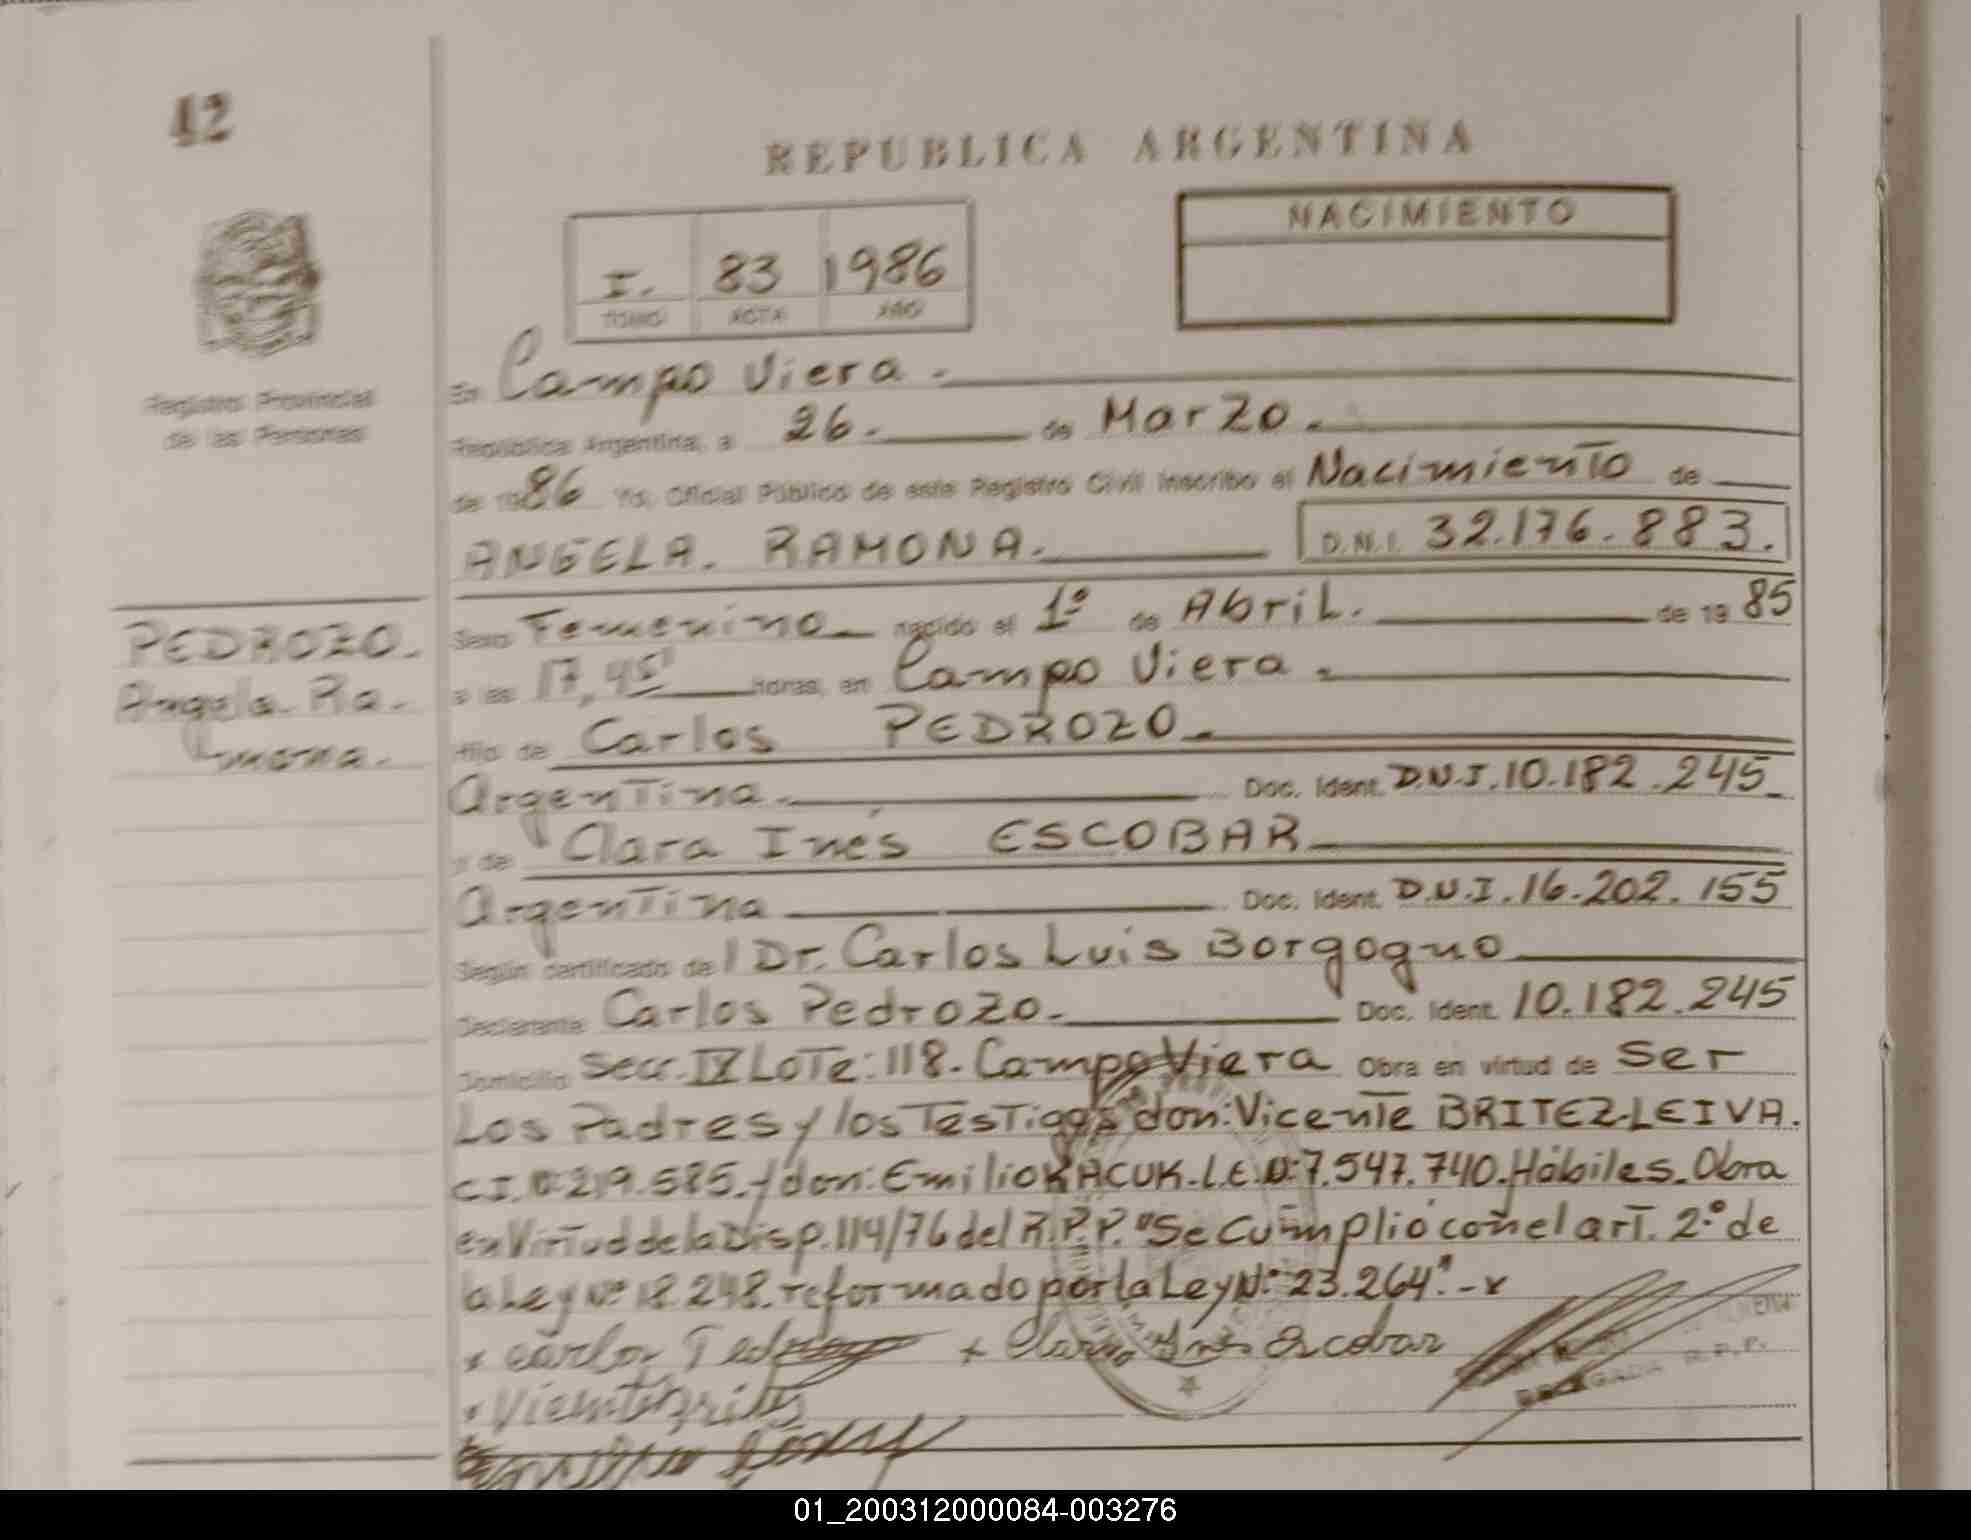 42
REPUBLICA ARGENTINA
NACIMIENTO
I. 83 1986
TOMO ACTA AÑO
Registro Provincial
de las Personas
En Campo Viera.
República Argentina, a 26. de Marzo.
de 1986 Yo, Oficial Público de este Registro Civil inscribo el Nacimiento de
ANGELA. RAMONA. D.N.I. 32.176.883.
PEDROZO.
Angela. Ra-
mona.
Sexo Femenino nacido el 1º de Abril. de 19 85
a las 17,45 horas, en Campo Viera.
Hijo de Carlos PEDROZO.
Argentina. Doc. Ident. D.N.I. 10.182.245
y de Clara Inés ESCOBAR
Argentina Doc. Ident. D.N.I. 16.202.155
Según certificado del Dr. Carlos Luis Borgogno
Declarante Carlos Pedrozo. Doc. Ident. 10.182.245
Domicilio Secc. IX Lote: 118. Campo Viera Obra en virtud de Ser
Los Padres y los Testigos don: Vicente BRITEZ-LEIVA.
C.I. Nº 219.585. y don: Emilio KACUK. L.E. Nº: 7.547.740. Hábiles. Obra
en Virtud de la Disp. 114/76 del R.P.P. "Se Cumplio con el art. 2.º de
la Ley Nº 18.248. reformado por la Ley N.º 23.264". - x
x Carlos Pedrozo x Clara Inés Escobar
R.P.P.
01_200312000084-003276